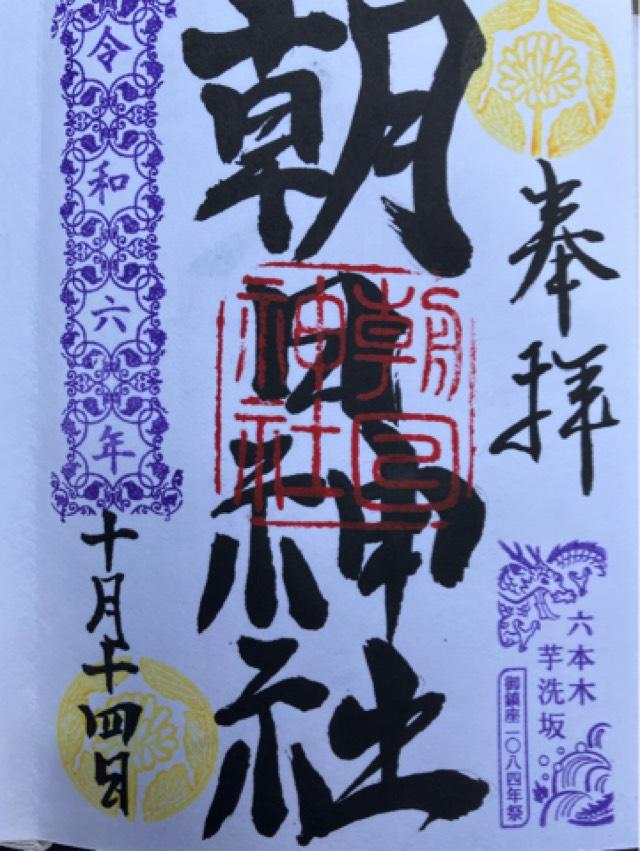 奉拝
六本木
芋洗坂
御鎮座一〇八四年祭
朝日神社
朝日
神社
令和六年
十月十四日